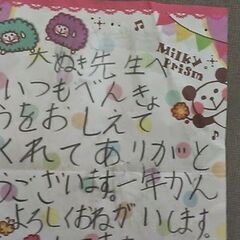 Milky
Prism
大ぬき先生へ
いつもべんきょ
うをおしえて
くれてありがと
うございます。一年かん
よろしくおねがいします。